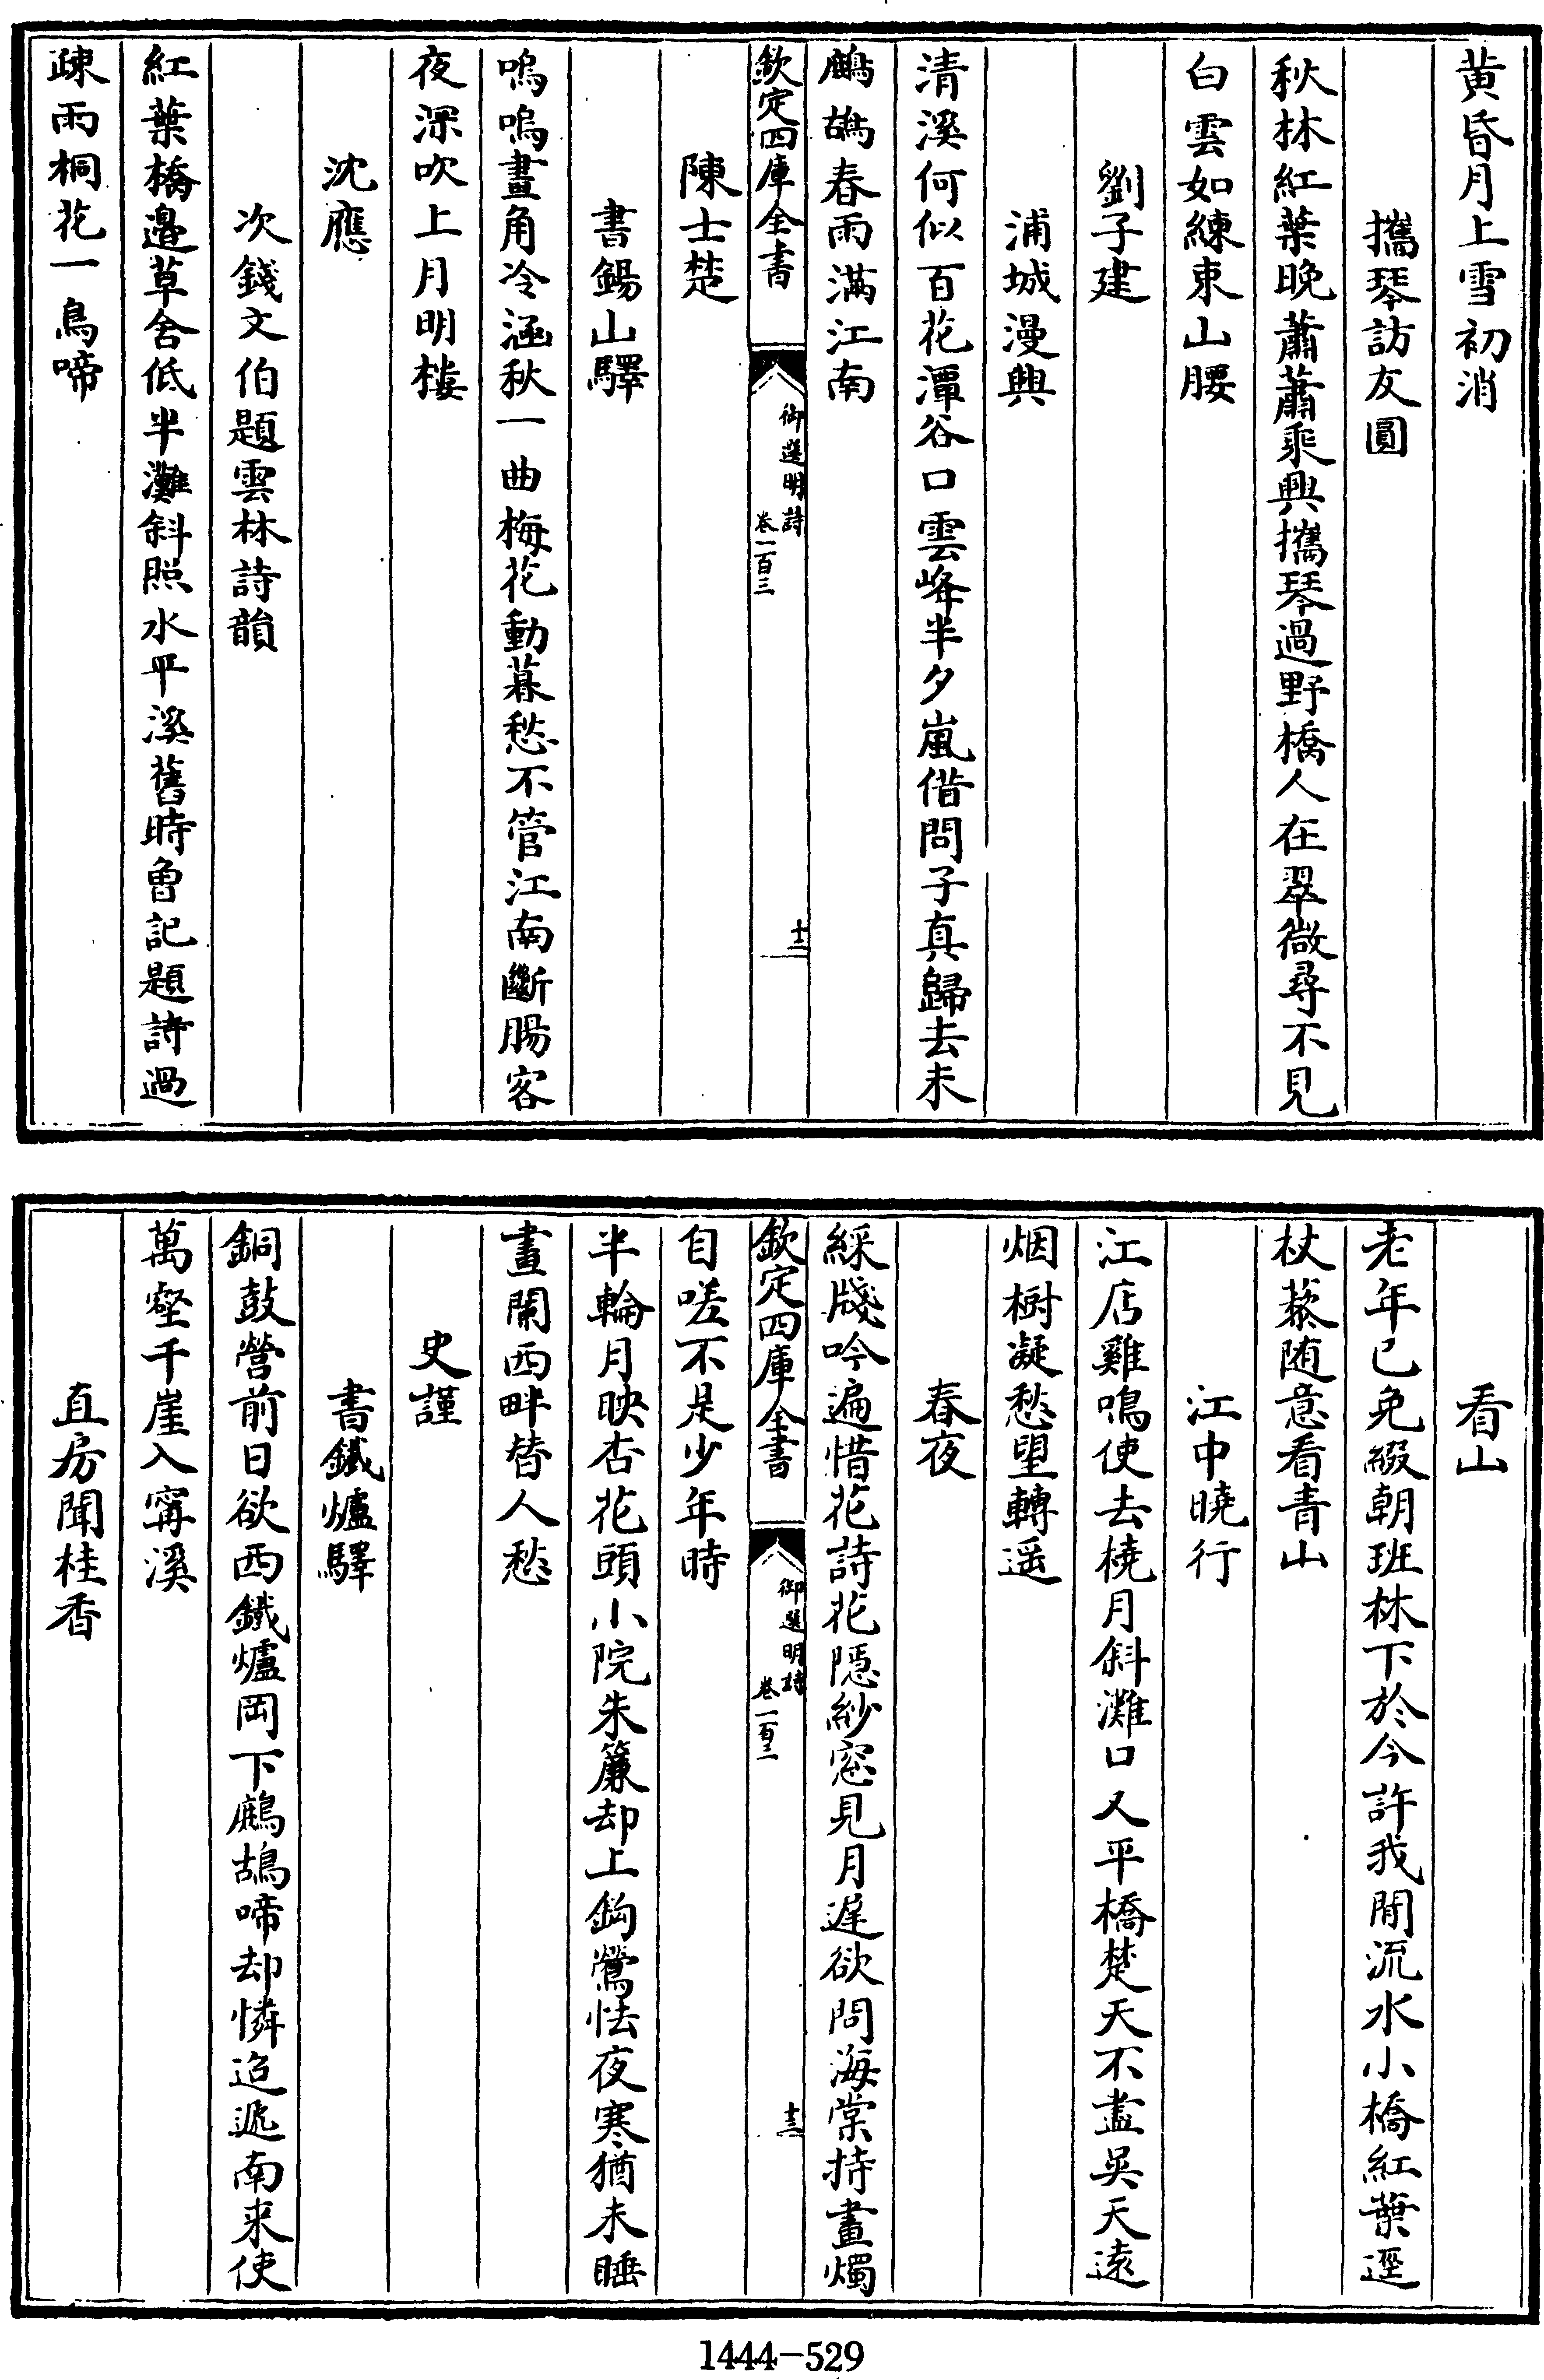 黄昏月上雪初消
攜琴訪友圓
秋林紅葉晚蕭蕭乘興攜琴過野橋人在翠微尋不見
白雲如練束山腰
劉子建
浦城漫興
清溪何似百花潭谷口雲峰半夕嵐借問子真歸去未
鷓鴣春雨滿江南
欽定四庫全書
御選明詩
卷一百三
十二
陳士楚
書錫山驛
嗚嗚畫角冷涵秋一曲梅花動暮愁不管江南斷腸客
夜深吹上月明樓
沈應
次錢文伯題雲林詩韻
紅葉橋邉草舍低半灘斜照水平溪舊時曾記題詩過
疎雨桐花一鳥啼
看山
老年已免綴朝班林下於今許我閒流水小橋紅葉逕
杖藜随意看青山
江中曉行
江店雞鳴使去橈月斜灘口又平橋楚天不盡吳天逺
烟樹凝愁望轉遥
春夜
綵牋吟遍惜花詩花隠紗窓見月遲欲問海棠持畫燭
欽定四庫全書
御選明詩
卷一百三
十三
自嗟不是少年時
半輪月映杏花頭小院朱簾却上鈎鶯怯夜寒猶未睡
畫闌西畔替人愁
史謹
書鐵爐驛
銅鼓營前日欲西鐵爐岡下鷓鴣啼却憐迢遞南来使
萬壑千崖入寗溪
直房聞桂香
1444-529